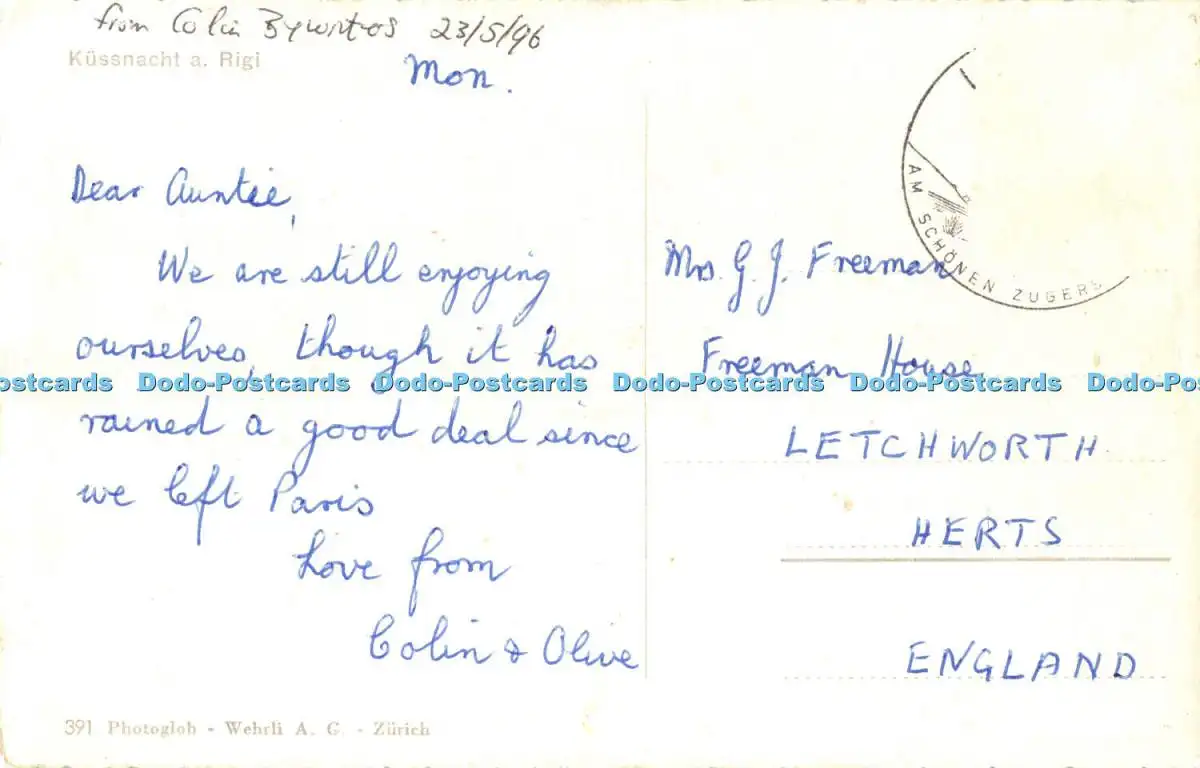 from Colin 23/5/96
Küssnacht a. Rigi
Mon.
Dear Auntie,
We are still enjoying
ourselves, though it has
rained a good deal since
we left Paris
Love from
Colin & Olive
391 Photoglob - Wehrli A. G. - Zürich
AM SCHÖNEN ZUGERS
Mrs. G. J. Freeman
Freeman House,
LETCHWORTH
HERTS
ENGLAND
ostcards Dodo-Postcards Dodo-Postcards Dodo-Postcards Dodo-Postcards Dodo-Po